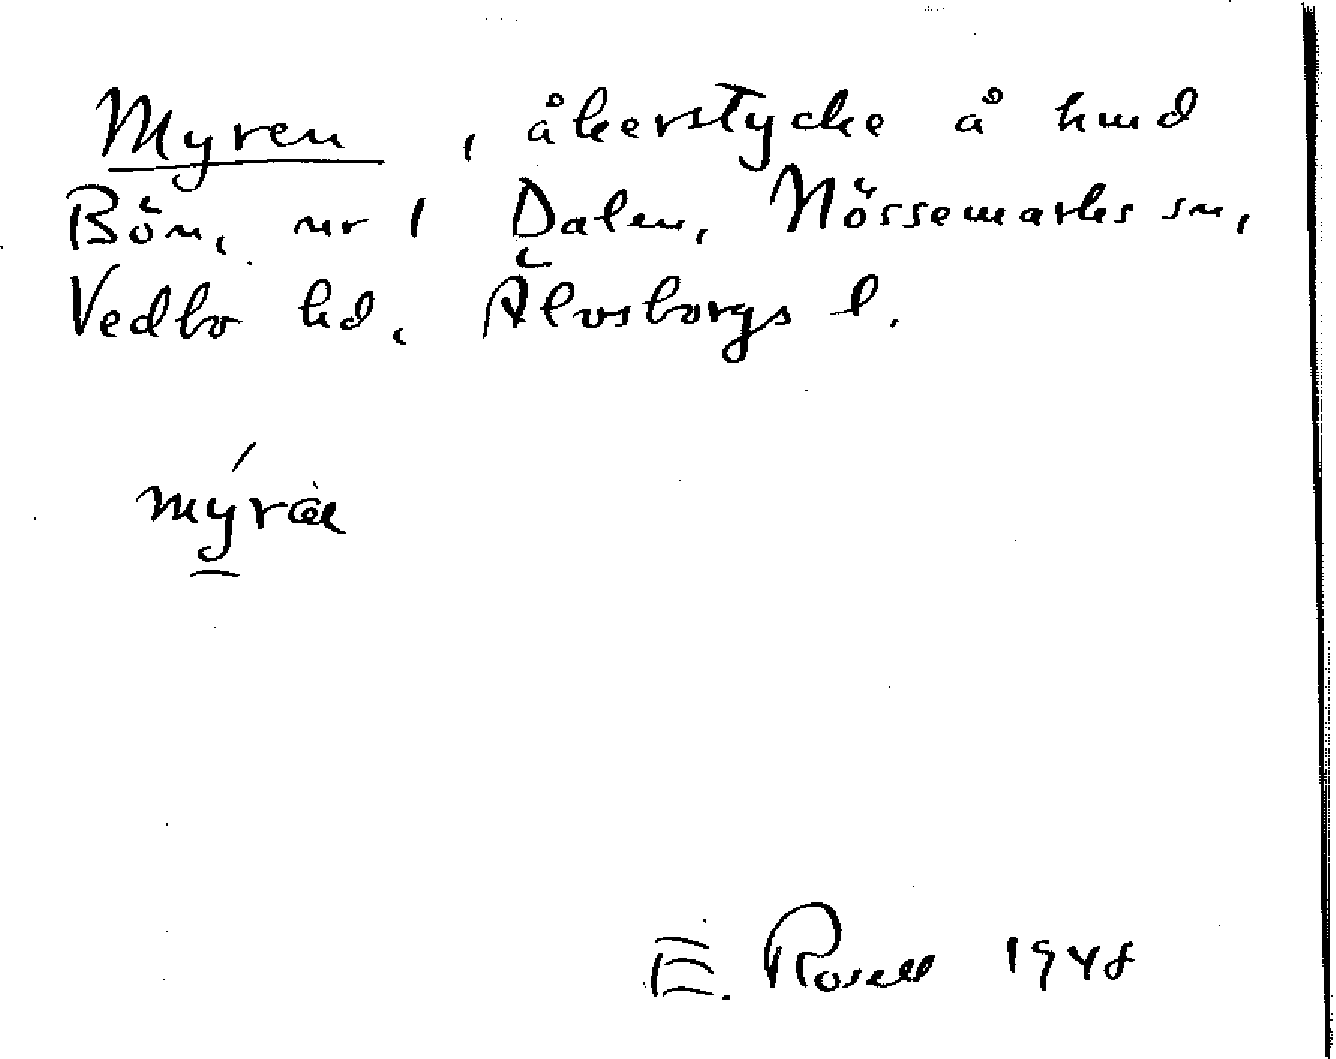 Myren, åkerstycke å hmd
Bön, nr 1 Dalen, Nössemarks sn,
Vedbo hd, Älvsborgs l.
E. Rosell 1948